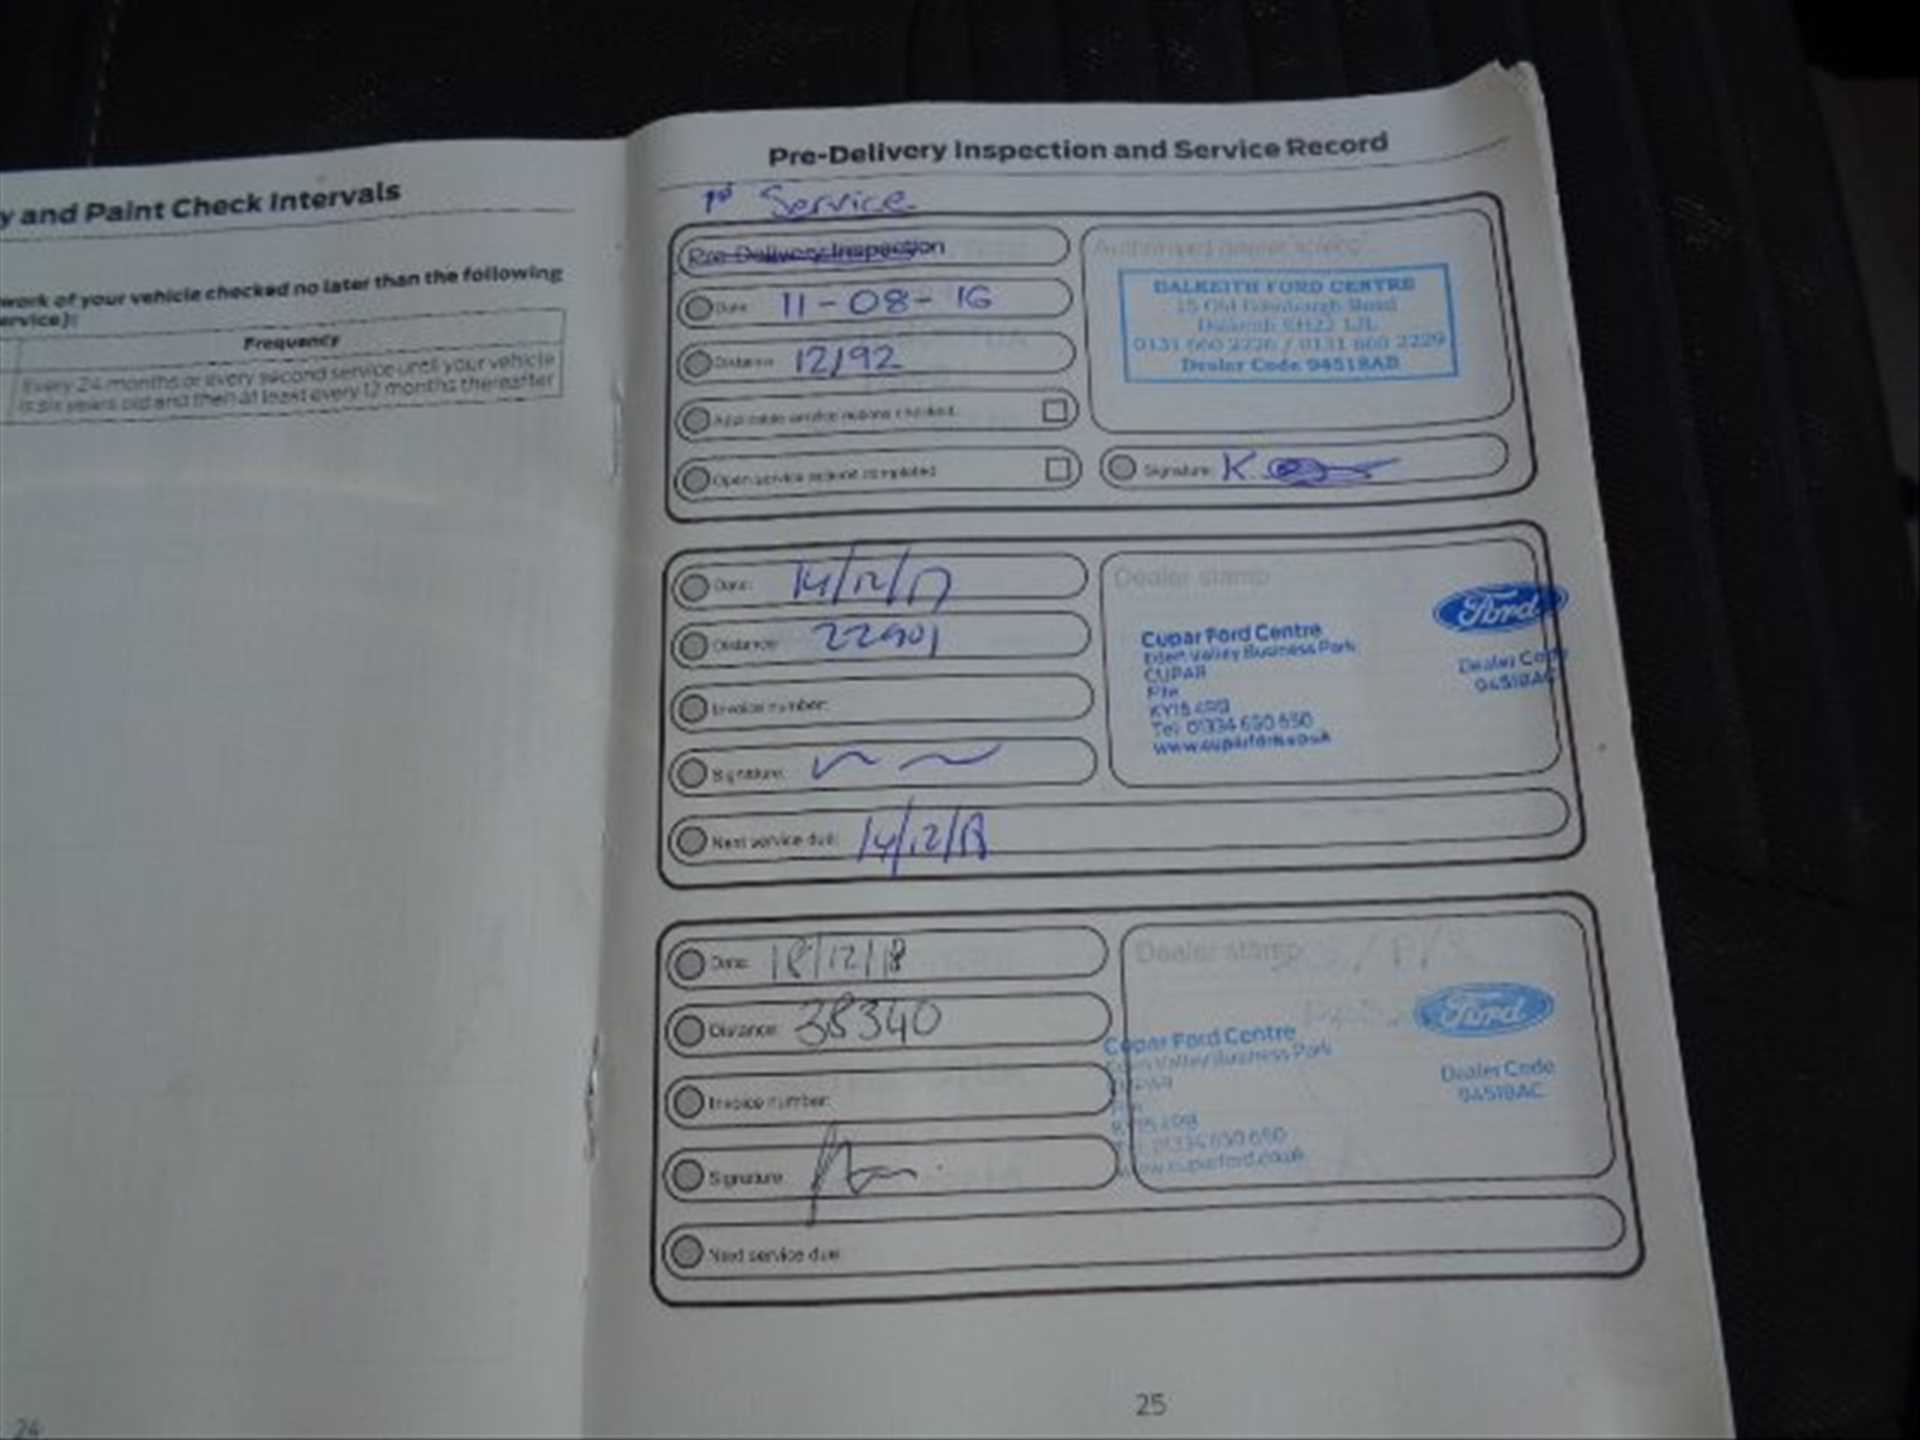 y and Paint Check Intervals
work of your vehicle checked no later than the following
ervice):
Frequency
Every 24 months or every second service until your vehicle
is six years old and then at least every 12 months thereafter
24
Pre-Delivery Inspection and Service Record
1st Service
Pre-Delivery Inspection
Date: 11-08-16
Distance: 12192
Applicable service actions checked
Open service actions completed
DALKEITH FORD CENTRE
15 Old Edinburgh Road
Dalkeith EH22 1JL
0131 660 2226 / 0131 660 2229
Dealer Code 94518AB
Signature: K.
Date: 14/12/17
Distance: 22901
Invoice number:
Signature:
Next service due: 14/12/18
Dealer stamp
Cupar Ford Centre
Eden Valley Business Park
CUPAR
Fife
KY15 4RB
Tel: 01334 650 650
www.cuparford.co.uk
Ford
Dealer Code
94518AC
Date: 18/12/18
Distance: 38340
Invoice number:
Signature:
Next service due:
Dealer stamp
Cupar Ford Centre
Eden Valley Business Park
CUPAR
Fife
KY15 4RB
Tel: 01334 650 650
www.cuparford.co.uk
Ford
Dealer Code
94518AC
25